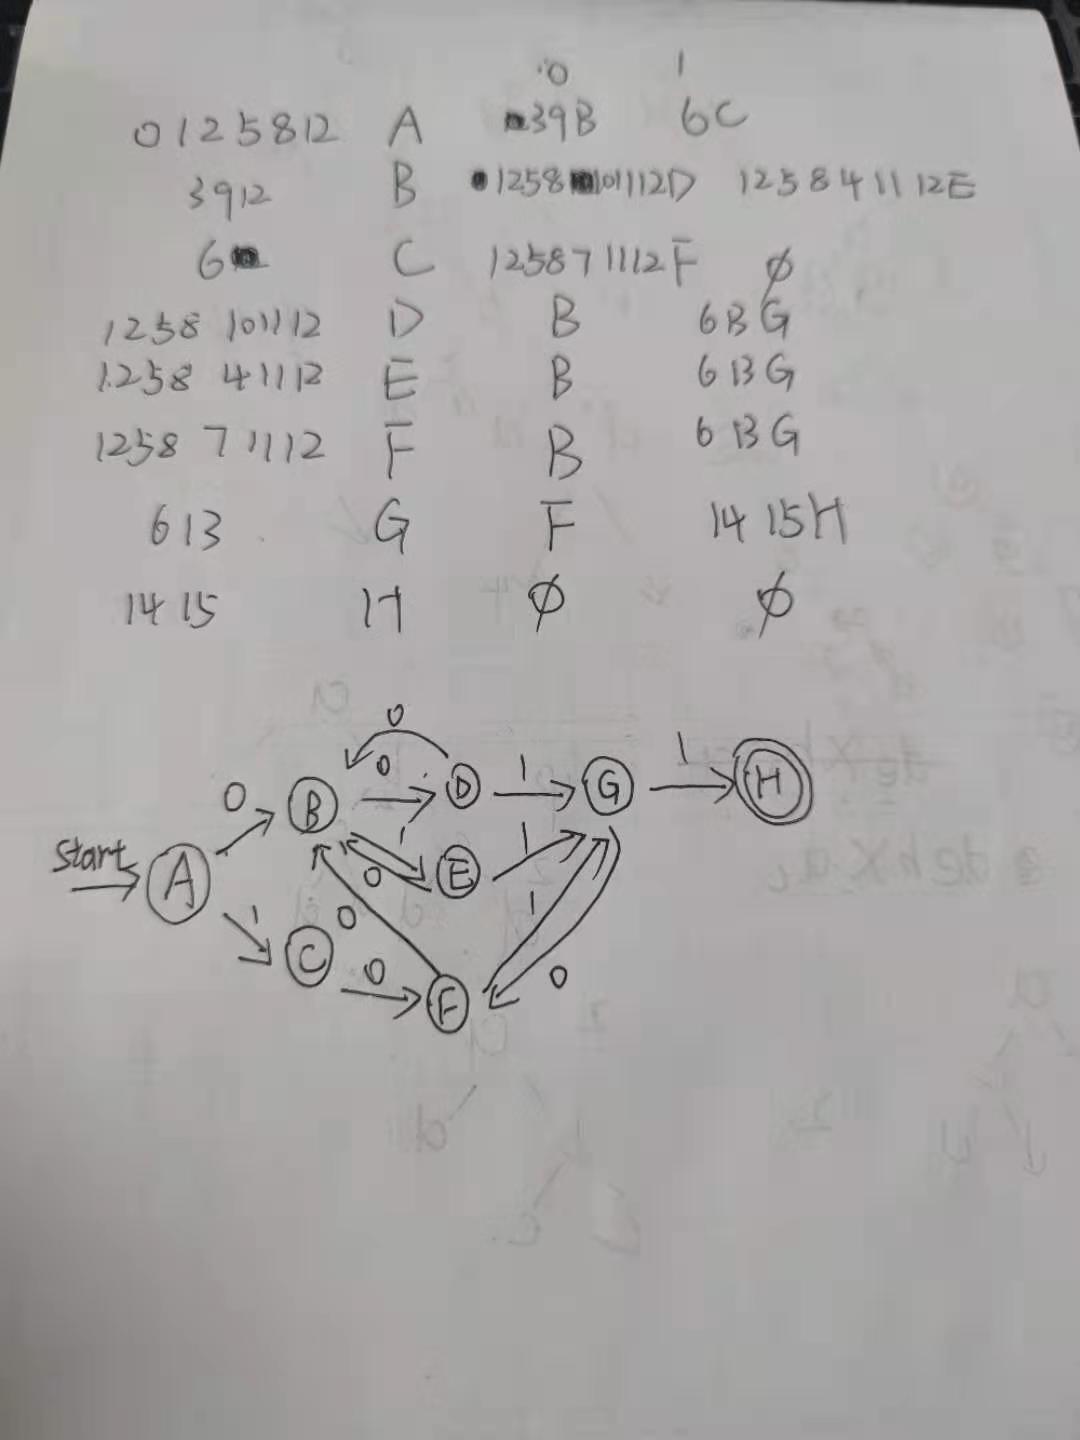 0 1
0125812 A 39B 6C
3912 B 1258 101112D 1258 41112E
6 C 1258 7 1112F ∅
1258 101112 D B 613G
1258 41112 E B 613G
1258 7 1112 F B 613G
613 G F 1415H
1415 H ∅ ∅
0
0 1 1
0 B D G H
1
start 0 E 1
A
1 0 1
C 0 0
F